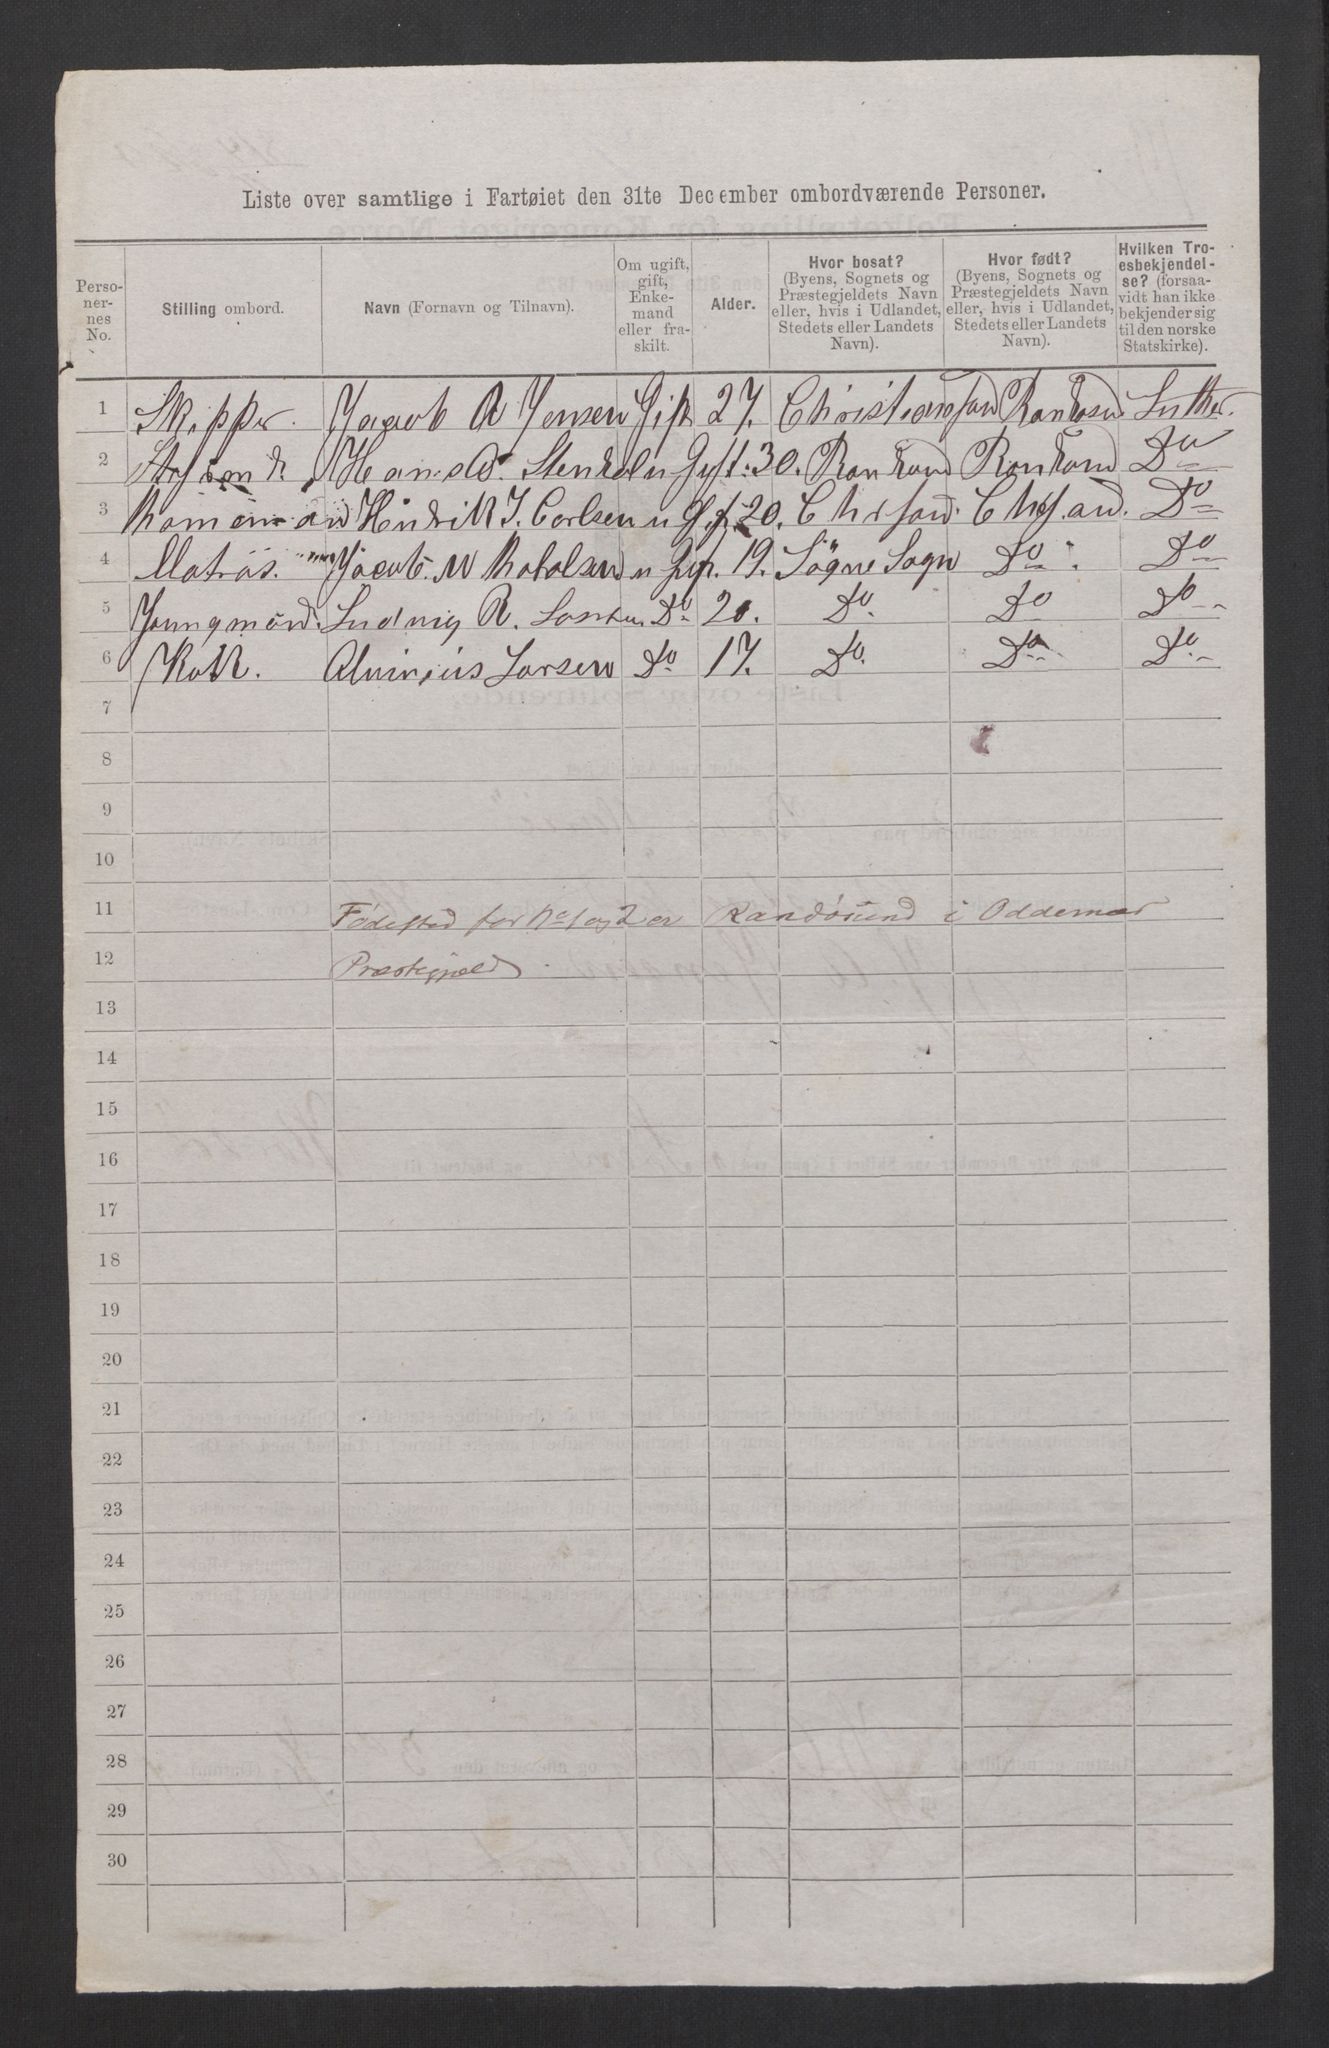 Liste over samtlige i Fartøiet den 31te December ombordværende Personer.
Personernes No. | Stilling ombord. | Navn (Fornavn og Tilnavn). | Om ugift, gift, Enkemand eller fraskilt. | Alder. | Hvor bosat? (Byens, Sognets og Præstegjeldets Navn eller, hvis i Udlandet, Stedets eller Landets Navn). | Hvor født? (Byens, Sognets og Præstegjeldets Navn eller, hvis i Udlandet, Stedets eller Landets Navn). | Hvilken Troesbekjendelse? (forsaavidt han ikke bekjender sig til den norske Statskirke).
1 Skipper. Jacob A Jensen Gift 27. Christiansand Luther.
2 Hans Gyft: 30. Do
3 Hendrik J. Carlsen u Gif. 20. Chrsand. Do
4 Matros. Jacob. M u Gyf. 19. Søgne Sogn Do. Do
5 Ludvig R. Do 20. Do. Do Do
6 Kokk. Larsen Do 17. Do. Do Do
7
8
9
10
11 Fødested for No 1 og 2 er Randøsund i Oddernæs
12 Præstegjeld.
13
14
15
16
17
18
19
20
21
22
23
24
25
26
27
28
29
30